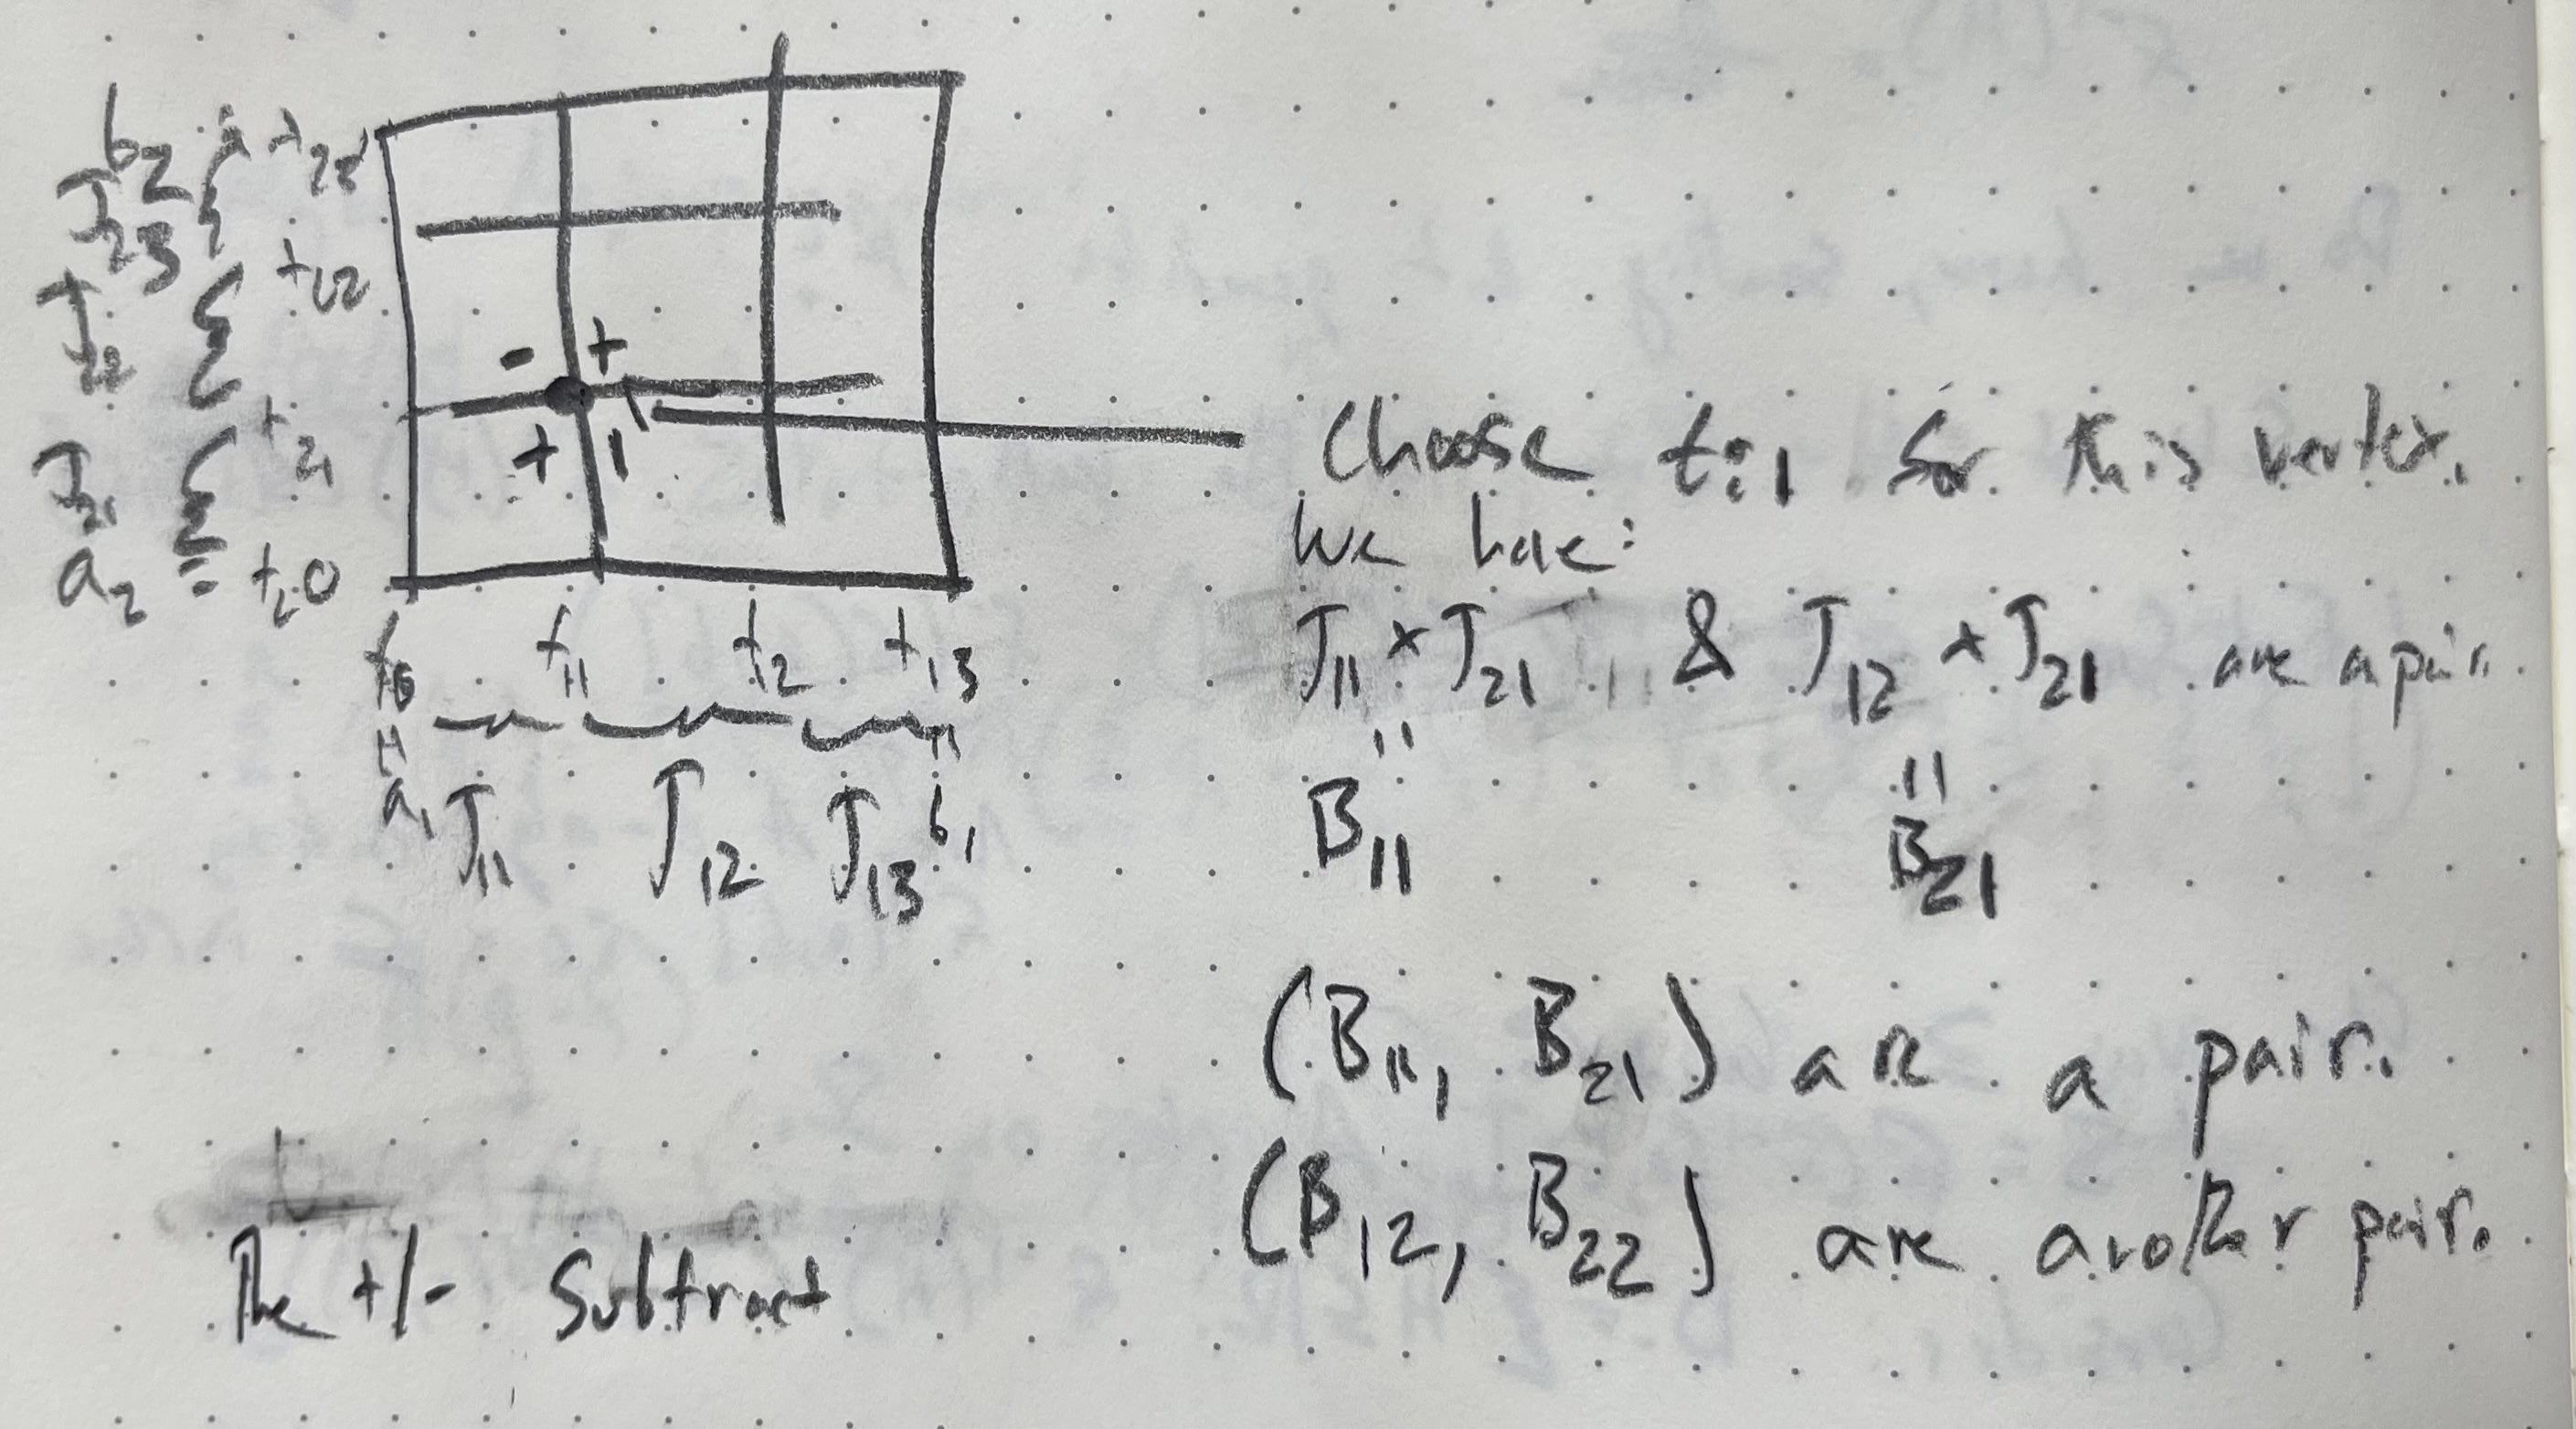 b2 t23
J23
t22
J22
- +
t21
+ |
J21
a2 = t20
t10 t11 t12 t13
a1 J11 J12 J13 b1
Choose ti1 for this vertex.
We have:
J11 × J21 & J12 × J21 are a pair.
" "
B11 B21
(B11, B21) are a pair.
(B12, B22) are another pair.
The +/- Subtract